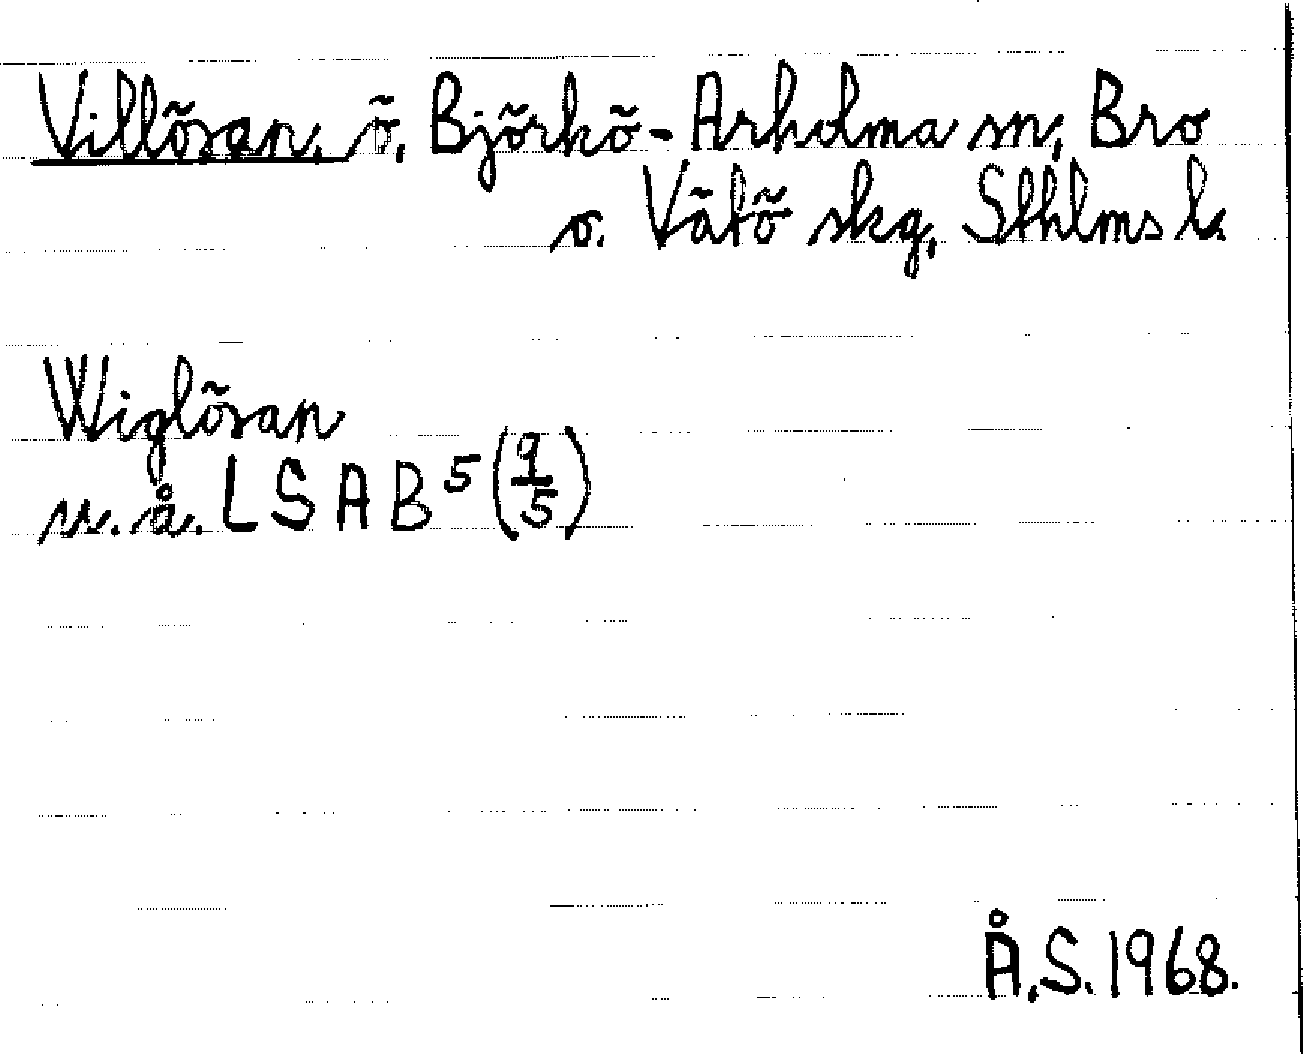 Villösan, ö, Björkö-Arholma sn, Bro
o. Vätö skg, Sthlms l.
Wiglösan
u.å. LSA B⁵ (9/5)
Å.S. 1968.